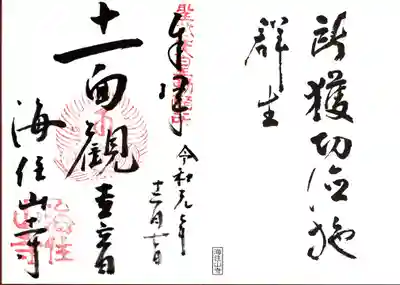 所獲功徳施
群生
奉拝
令和元年
十二月十六日
十一面観音
海住山寺
海住山寺